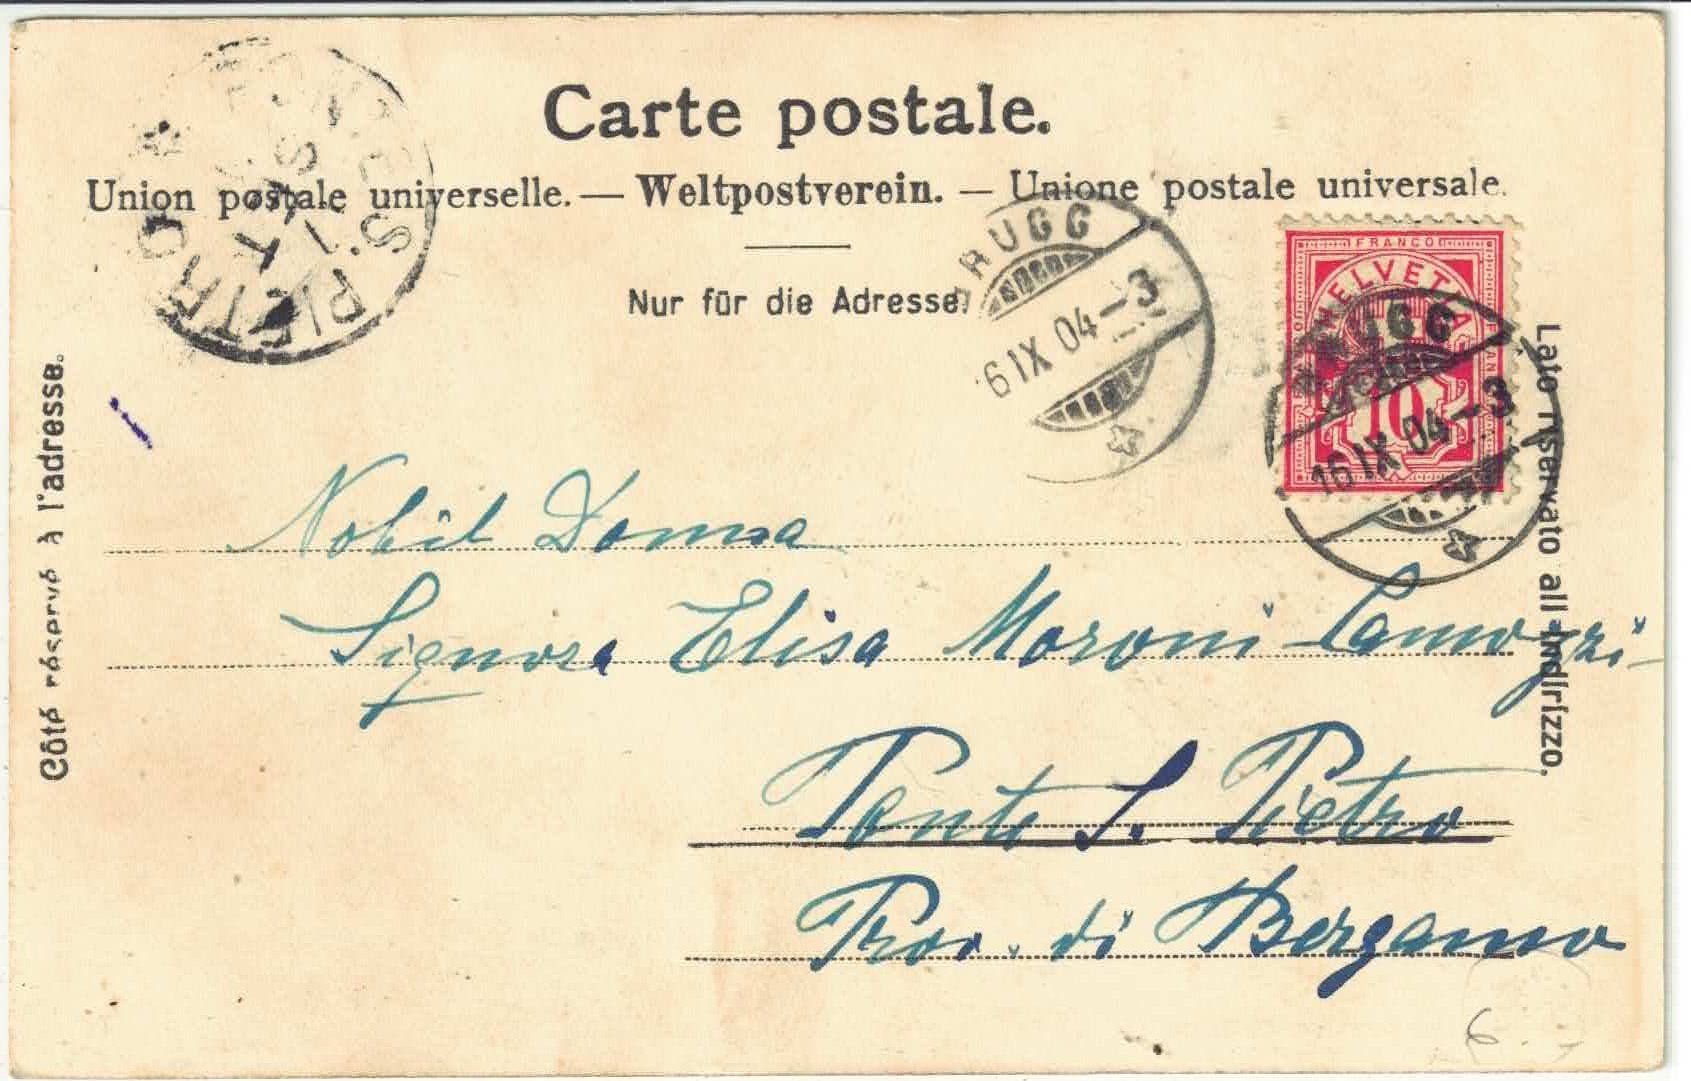 Carte postale.
Union postale universelle. — Weltpostverein. — Unione postale universale.
Nur für die Adresse.
Côté réservé à l'adresse.
Lato riservato all'indirizzo.
PONTE S. PIETRO
BRUGG
16 IX 04 – 3
FRANCO
HELVETIA
10
BRUGG
16 IX 04 – 3
Nobil Donna
Signora Elisa Moroni Camozzi-
Ponte S. Pietro
Prov. di Bergamo
6